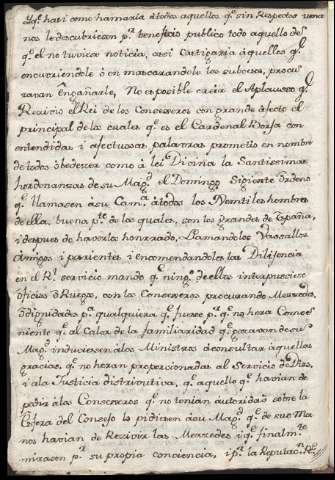 y qᵉ hari como hamaria à todos aquellos qᵉ sin Respectos uma
nos le descubriesen pᵃ beneficio publico todo aquello dol
qᵉ el no tuviere noticia, assi Castigaria à quellos qᵉ
encubriendole ò en mascarandole las subceos, procu
raran Engañarle, No es posible creèr el Aplauso qᵉ
Recivio el Rei de los Conseieros con grande afecto el
principal de los cuales qᵉ es el Cardenal Borja con
entendidas i afectuosas palavras prometio en nombre
de todos òbedezer como à lei Divina la Santissimas
hordenanzas de su Magᵈ el Domingo Sigiente òrdeno
qᵉ llamasen à su Camᵃ à todos los Yentiles hombres
de ella, buena pᵗᵉ de los quales, son los grandes de España,
i despues de haverlos honrrado, llamandolos Vassallos
Amigos i parientes i encomendandoles las Dilijencia
en el Rˡ servicio mando qᵉ ningᵒ de ellos interpusiese
oficios ò Ruegos, con los Conseieros procurando Mercedes,
ò dignidades pᵃ qualquiera qᵉ fuese pᵃ qᵉ no hera Conve
niente qᵉ al Calor de la familiaridad qᵉ gozavan de su
Magᵈ induciesen à los Ministros à consultar àquellas
gracias, qᵉ no heran proporcionadas al Servicio de Dios,
i à la Justicia distributiva, qᵉ aquello qᵉ havian de
pedir à los Conseieros qᵉ no tenian autoridad sobre la
Cabeza del Consejo lo pidiesen à su Magᵈ qᵉ de sus Ma
nos havian de Rezivir las Mercedes i qᵉ finalmᵗᵉ
mirasen pᵃ su propia conciencia, i pᵃ la Reputacⁿ Rˡ